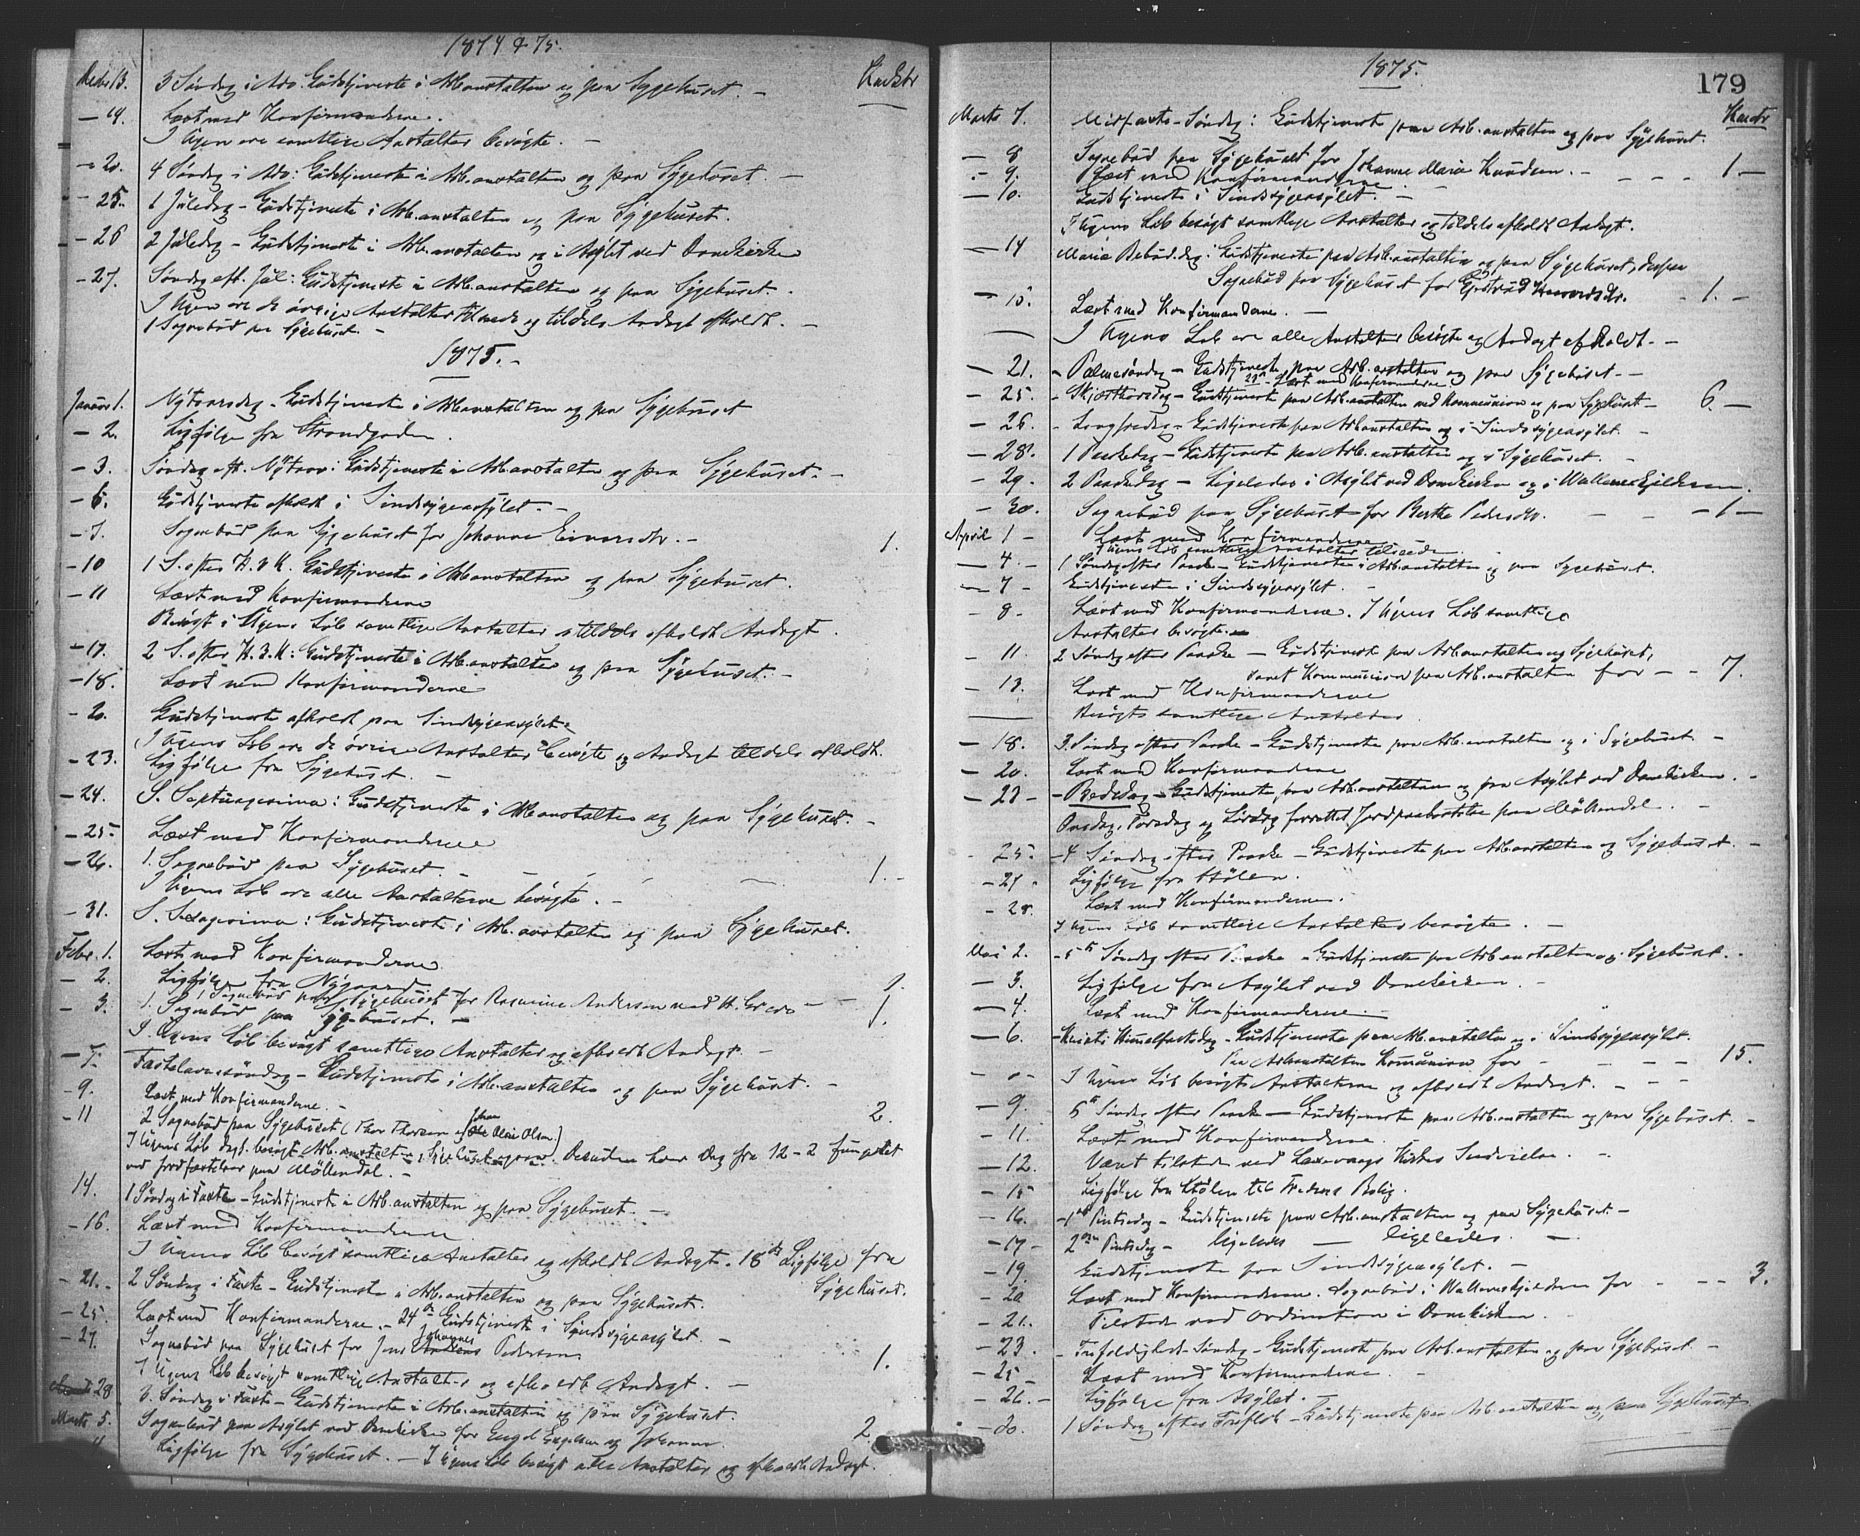 1874 & 75.
Kncktr
Decbr 13. 3 Søndag i Adv. Gudstjeneste i Arb.anstalten og paa Sygehuset. —
— 14. Læst med Konfirmanderne.
I Ugen ere samtlige Anstalter besøgte. —
— 20. 4 Søndag i Adv: Gudstjeneste i Arb.anstalten og paa Sygehuset. —
— 25. 1 Juledag – Gudstjeneste i Arb.anstalten og paa Sygehuset.
— 26 2 Juledag – Gudstjeneste i Arb.anstalten og i Asylet ved Domkirken
— 27. Søndag eft. Jul: Gudstjeneste i Arb.anstalten og paa Sygehuset.
I Ugen ere de øvrige Anstalter tilseede og tildels Andagt afholdt. —
1 Sognebud paa Sygehuset —
1875. —
Januar 1. Nytaarsdag – Gudstjeneste i Arb.anstalten og paa Sygehuset
— 2. Ligfølge fra Strandgaden.
— 3. Søndag eft. Nytaar: Gudstjeneste i Arb.anstalten og paa Sygehuset. —
— 6. Gudstjeneste afholdt i Sindssygeasylet. —
— 7. Sognebud paa Sygehuset for Johanne Einarsdtr. — 1.
— 10 1 S. efter H. 3 K. Gudstjeneste i Arb.anstalten og paa Sygehuset.
— 11 Læst med Konfirmanderne
Besøgt i Ugens Løb samtlige Anstalter, tildels afholdt Andagt.
— 17. 2 S. efter H. 3 K: Gudstjeneste i Arb.anstalten og paa Sygehuset. —
— 18. Læst med Konfirmanderne
— 20. Gudstjeneste afholdt paa Sindssygeasylet.
I Ugens Løb ere de øvrige Anstalter besøgte og Andagt tildels afholdt.
— 23. Ligfølge fra Sygehuset. —
— 24. S. Septuagesima: Gudstjeneste i Arb.anstalten og paa Sygehuset. —
— 25. Læst med Konfirmanderne
— 26. 1. Sognebud paa Sygehuset. — 1. —
I Ugens Løb ere alle Anstalterne besøgte. —
— 31. S. Sexagesima: Gudstjeneste i Arb.anstalten og paa Sygehuset.
Febr. 1. Læst med Konfirmanderne
— 2. Ligfølge fra Nygaard
1 Sognebud paa Sygehuset for Rasmine Andersen med
— 3. 1. Sognebud paa Sygehuset. — 1.
I Ugens Løb besøgt samtlige Anstalter og afholdt Andagt. —
— 7. Fastelavnssøndag – Gudstjeneste i Arb.anstalten og paa Sygehuset. —
— 9. Læst med Konfirmanderne. —
— 11 2 Sognebud paa Sygehuset (Thor Thorsen og Olsen) 2.
I Ugens Løb dagl. besøgt Arb.anstalten, Sygehuset Desuden hver Dag fra 12–2 fungeret
ved Jordfæstelser paa Møllendal. —
14. 1 Søndag i Faste – Gudstjeneste i Arb.anstalten og paa Sygehuset. —
— 16. Læst med Konfirmanderne
I Ugens Løb besøgt samtlige Anstalter og afholdt Andagt. 18de Ligfølge fra
Sygehuset.
— 21. 2 Søndag i Faste – Gudstjeneste i Arb.anstalten og paa Sygehuset.
— 25. Læst med Konfirmanderne. – 24de Gudstjeneste i Sindssygeasylet. —
— 27. Sognebud paa Sygehuset for Jens Johannes Pedersen 1.
I Ugens Løb besøgt samtlige Anstalter og afholdt Andagt. —
28 3. Søndag i Faste – Gudstjeneste i Arb.anstalten og paa Sygehuset.
Marts 5. Sognebud paa Asylet ved Domkirken for Engel Engelsen og Johanne 2.
Ligfølge fra Sygehuset. — I Ugens Løb besøgt alle Anstalter og afholdt Andagt.
1875.
179
Kncktr
Marts 7. Midfaste-Søndag: Gudstjeneste paa Arb.anstalten og paa Sygehuset.
— 8 Sognebud paa Sygehuset for Johanne Marie Knudsen. — 1. —
— 9. Læst med Konfirmanderne. —
— 10. Gudstjeneste i Sindssygeasylet. —
I Ugens Løb besøgt samtlige Anstalter og tildels afholdt Andagt.
— 14 Mariæ Bebud.dag: Gudstjeneste paa Arb.anstalten og paa Sygehuset,
Sognebud paa Sygehuset for — 1. —
— 15. Læst med Konfirmanderne. —
I Ugens Løb ere alle Anstalter besøgte og Andagt afholdt. —
— 21. – Palmesøndag – Gudstjeneste paa Arb.anstalten og paa Sygehuset. —
Læst med Konfirmanderne
— 25. – Skjærthorsdag – Gudstjeneste paa Arb.anstalten med Kommunion og paa Sygehuset – 6. —
— 26. – Langfredag – Gudstjeneste paa Arb.anstalten og i Sindssygeasylet. —
— 28. 1 Paaskedag – Gudstjeneste paa Arb.anstalten og i Sygehuset. —
— 29. 2 Paaskedag – Ligeledes i Asylet ved Domkirken og i
— 30. Sognebud paa Sygehuset for Berthe Pedersdtr. — 1 —
April 1 – Læst med Konfirmanderne
I Ugens Løb samtlige Anstalter tilseede.
— 4. – 1 Søndag efter Paaske – Gudstjeneste i Arb.anstalten og paa Sygehuset.
— 7 – Gudstjeneste i Sindssygeasylet. —
— 8 – Læst med Konfirmanderne. I Ugens Løb samtlige
Anstalter besøgte. —
— 11. 2 Søndag efter Paaske – Gudstjeneste paa Arb.anstalten og Sygehuset,
samt Kommunion paa Arb.anstalten for — 7.
— 13. Læst med Konfirmanderne
Besøgt samtlige Anstalter.
— 18. 3. Søndag efter Paaske – Gudstjeneste paa Arb.anstalten og i Sygehuset. —
— 20. Læst med Konfirmanderne
— 23 – – Bededag – Gudstjeneste paa Arb.anstalten og paa Asylet ved Domkirken. —
Onsdag, Torsdag og Lørdag forrettet Jordpaakastelse paa Møllendal. —
— 25. – 4 Søndag efter Paaske – Gudstjeneste paa Arb.anstalten og Sygehuset. —
— 27 – Ligfølge fra Stølen. —
— 28. Læst med Konfirmanderne.
I Ugens Løb samtlige Anstalter besøgte. —
Mai 2. – 5te Søndag efter Paaske – Gudstjeneste paa Arb.anstalten og Sygehuset. —
— 3. Ligfølge fra Asylet ved Domkirken. —
— 4. Læst med Konfirmanderne. —
— 6. – Kristi Himmelfartsdag – Gudstjeneste paa Arb.anstalten og i Sindssygeasylet.
Paa Arb.anstalten Kommunion for — 15.
I Ugens Løb besøgt Anstalterne og afholdt Andagt. —
— 9. 6te Søndag efter Paaske – Gudstjeneste paa Arb.anstalten og paa Sygehuset. —
— 11. Læst med Konfirmanderne.
— 12. Været tilstede ved Laxevaags Kirkes Indvielse. —
— 15 Ligfølge fra Stølen til Bolig.
— 16. – 1ste Pintsedag – Gudstjeneste paa Arb.anstalten og paa Sygehuset. —
— 17 – 2den Pintsedag – ligeledes — ligeledes. —
— 19. Gudstjeneste paa Sindssygeasylet. —
— 20 Læst med Konfirmanderne. Sognebud i for — 3.
— 21. Tilstede ved Ordination i Domkirken.
— 23. – Trefoldigheds-Søndag – Gudstjeneste paa Arb.anstalten og paa Sygehuset. —
— 25 – Læst med Konfirmanderne. —
— 26. – Ligfølge fra Asylet. —
— 30. 1 Søndag efter Trefold. – Gudstjeneste paa Arb.anstalten og paa Sygehuset